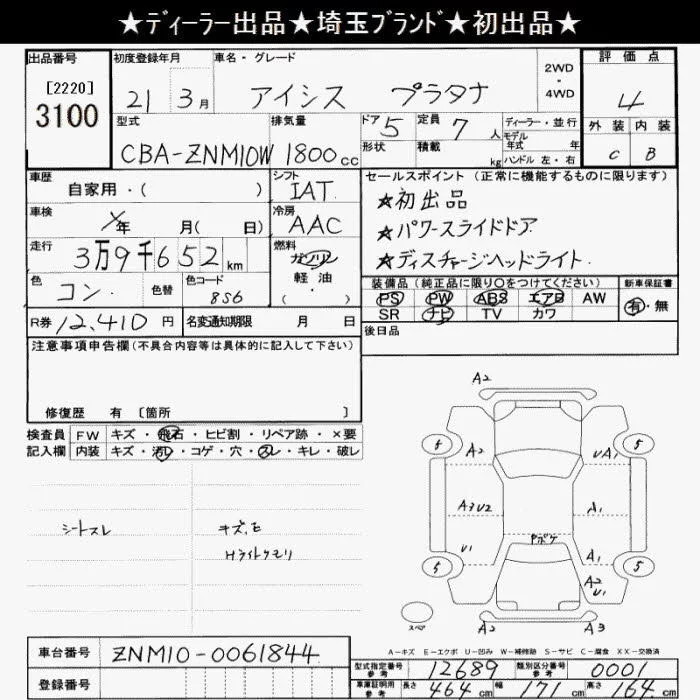 ★ディーラー出品★埼玉ブランド★初出品★
出品番号
[2220]
3100
初度登録年月
21 3月
車名・グレード
アイシス プラタナ
2WD
・
4WD
評価点
4
外装 内装
C B
型式
CBA-ZNM10W
排気量
1800cc
ドア 5
形状
定員 7人
積載 kg
ディーラー・並行
モデル年式 年
ハンドル 左・右
車歴
自家用・( )
シフト
IAT
車検
X年 月( 日)
冷房
AAC
走行
3万9千652km
燃料
ガソリン
軽油
・( )
色
コン
色替
色コード
8S6
R券 12,410円
名変通知期限 月 日
セールスポイント(正常に機能するものに限ります)
★初出品
★パワースライドドア
★ディスチャージヘッドライト
装備品(純正品に限り○をつけてください)
PS PW ABS エアB AW
SR ナビ TV カワ
新車保証書
有・無
後日品
注意事項申告欄(不具合内容等は具体的に記入して下さい)
修復歴 有 〔箇所 〕
検査員記入欄
FW キズ・飛石・ヒビ割・リペア跡・×要
内装 キズ・汚レ・コゲ・穴・スレ・キレ・破レ
シートスレ
キズ、E
Hライトクモリ
A2
5 A2 UA1 5
A3U2 A1
Pボケ
U1 A1
5 A2 U 5
スペア
A2 A3
A-キズ E-エクボ U-凹み W-補修跡 S-サビ C-腐食 XX-交換済
車台番号 ZNM10-0061844
登録番号
型式指定番号参考 12689
類別区分番号参考 0001
車庫証明用参考 長さ 464cm 幅 171cm 高さ 164cm